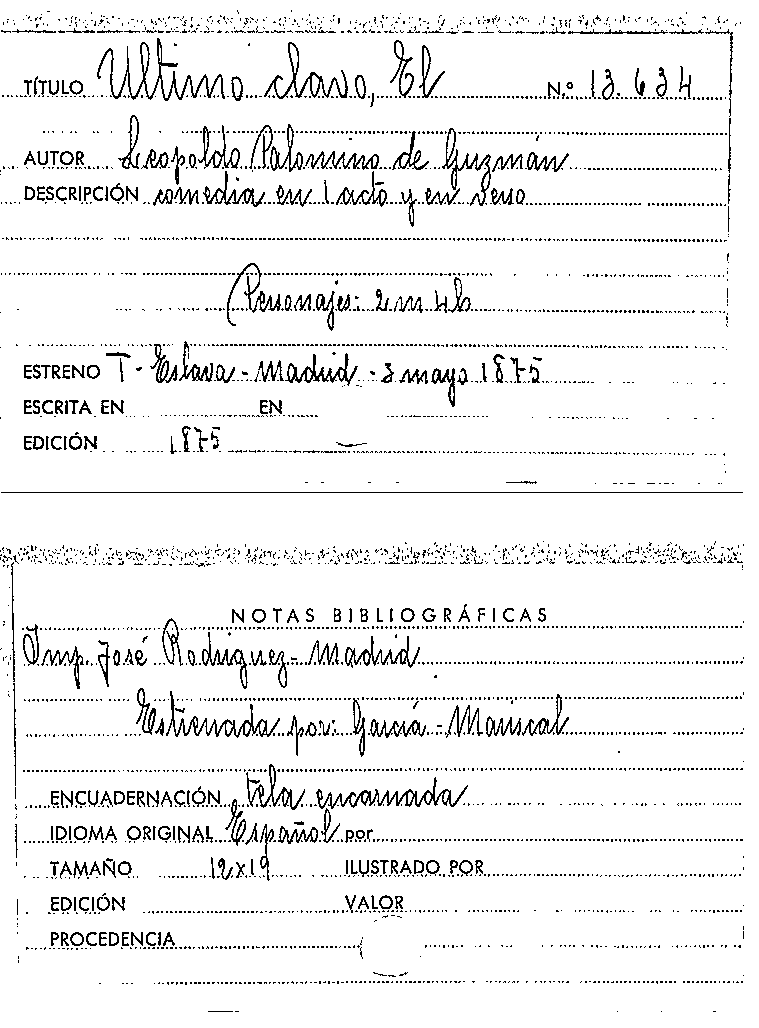 TÍTULO Ultimo clavo, El N.º 13.634
AUTOR Leopoldo Palomino de Guzmán
DESCRIPCIÓN comedia en 1 acto y en verso
(Personajes: 2 m 4 h
ESTRENO T - Eslava - Madrid - 3 mayo 1875
ESCRITA EN EN
EDICIÓN 1875
NOTAS BIBLIOGRÁFICAS
Imp. José Rodriguez - Madrid
Estrenada por: García - Mariscal
ENCUADERNACIÓN tela encarnada
IDIOMA ORIGINAL Español por
TAMAÑO 12x19 ILUSTRADO POR
EDICIÓN VALOR
PROCEDENCIA